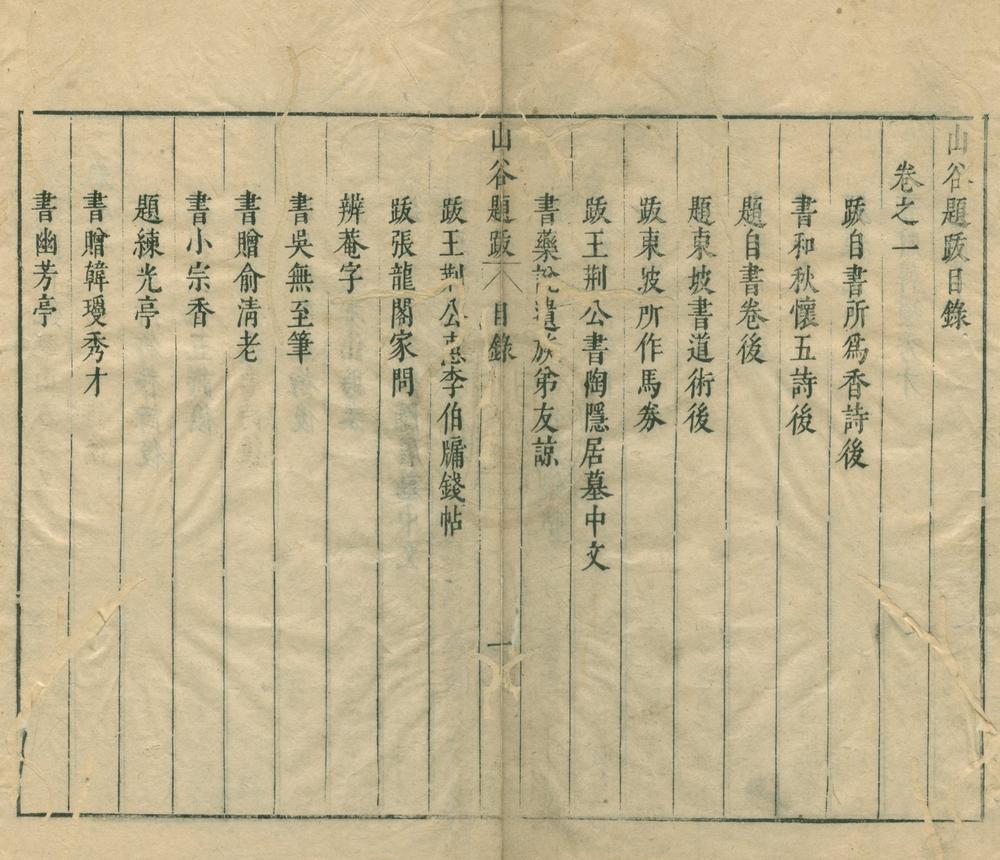 山谷題跋目錄
卷之一
跋自書所爲香詩後
書和秋懷五詩後
題自書卷後
題東坡書道術後
跋東坡所作馬劵
跋王荆公書陶隱居墓中文
書藥說遺族弟友諒
山谷題跋 目錄 一
跋王荆公惠李伯牗錢帖
跋張龍閣家問
辨菴字
書吳無至筆
書贈俞淸老
書小宗香
題練光亭
書贈韓瓊秀才
書幽芳亭